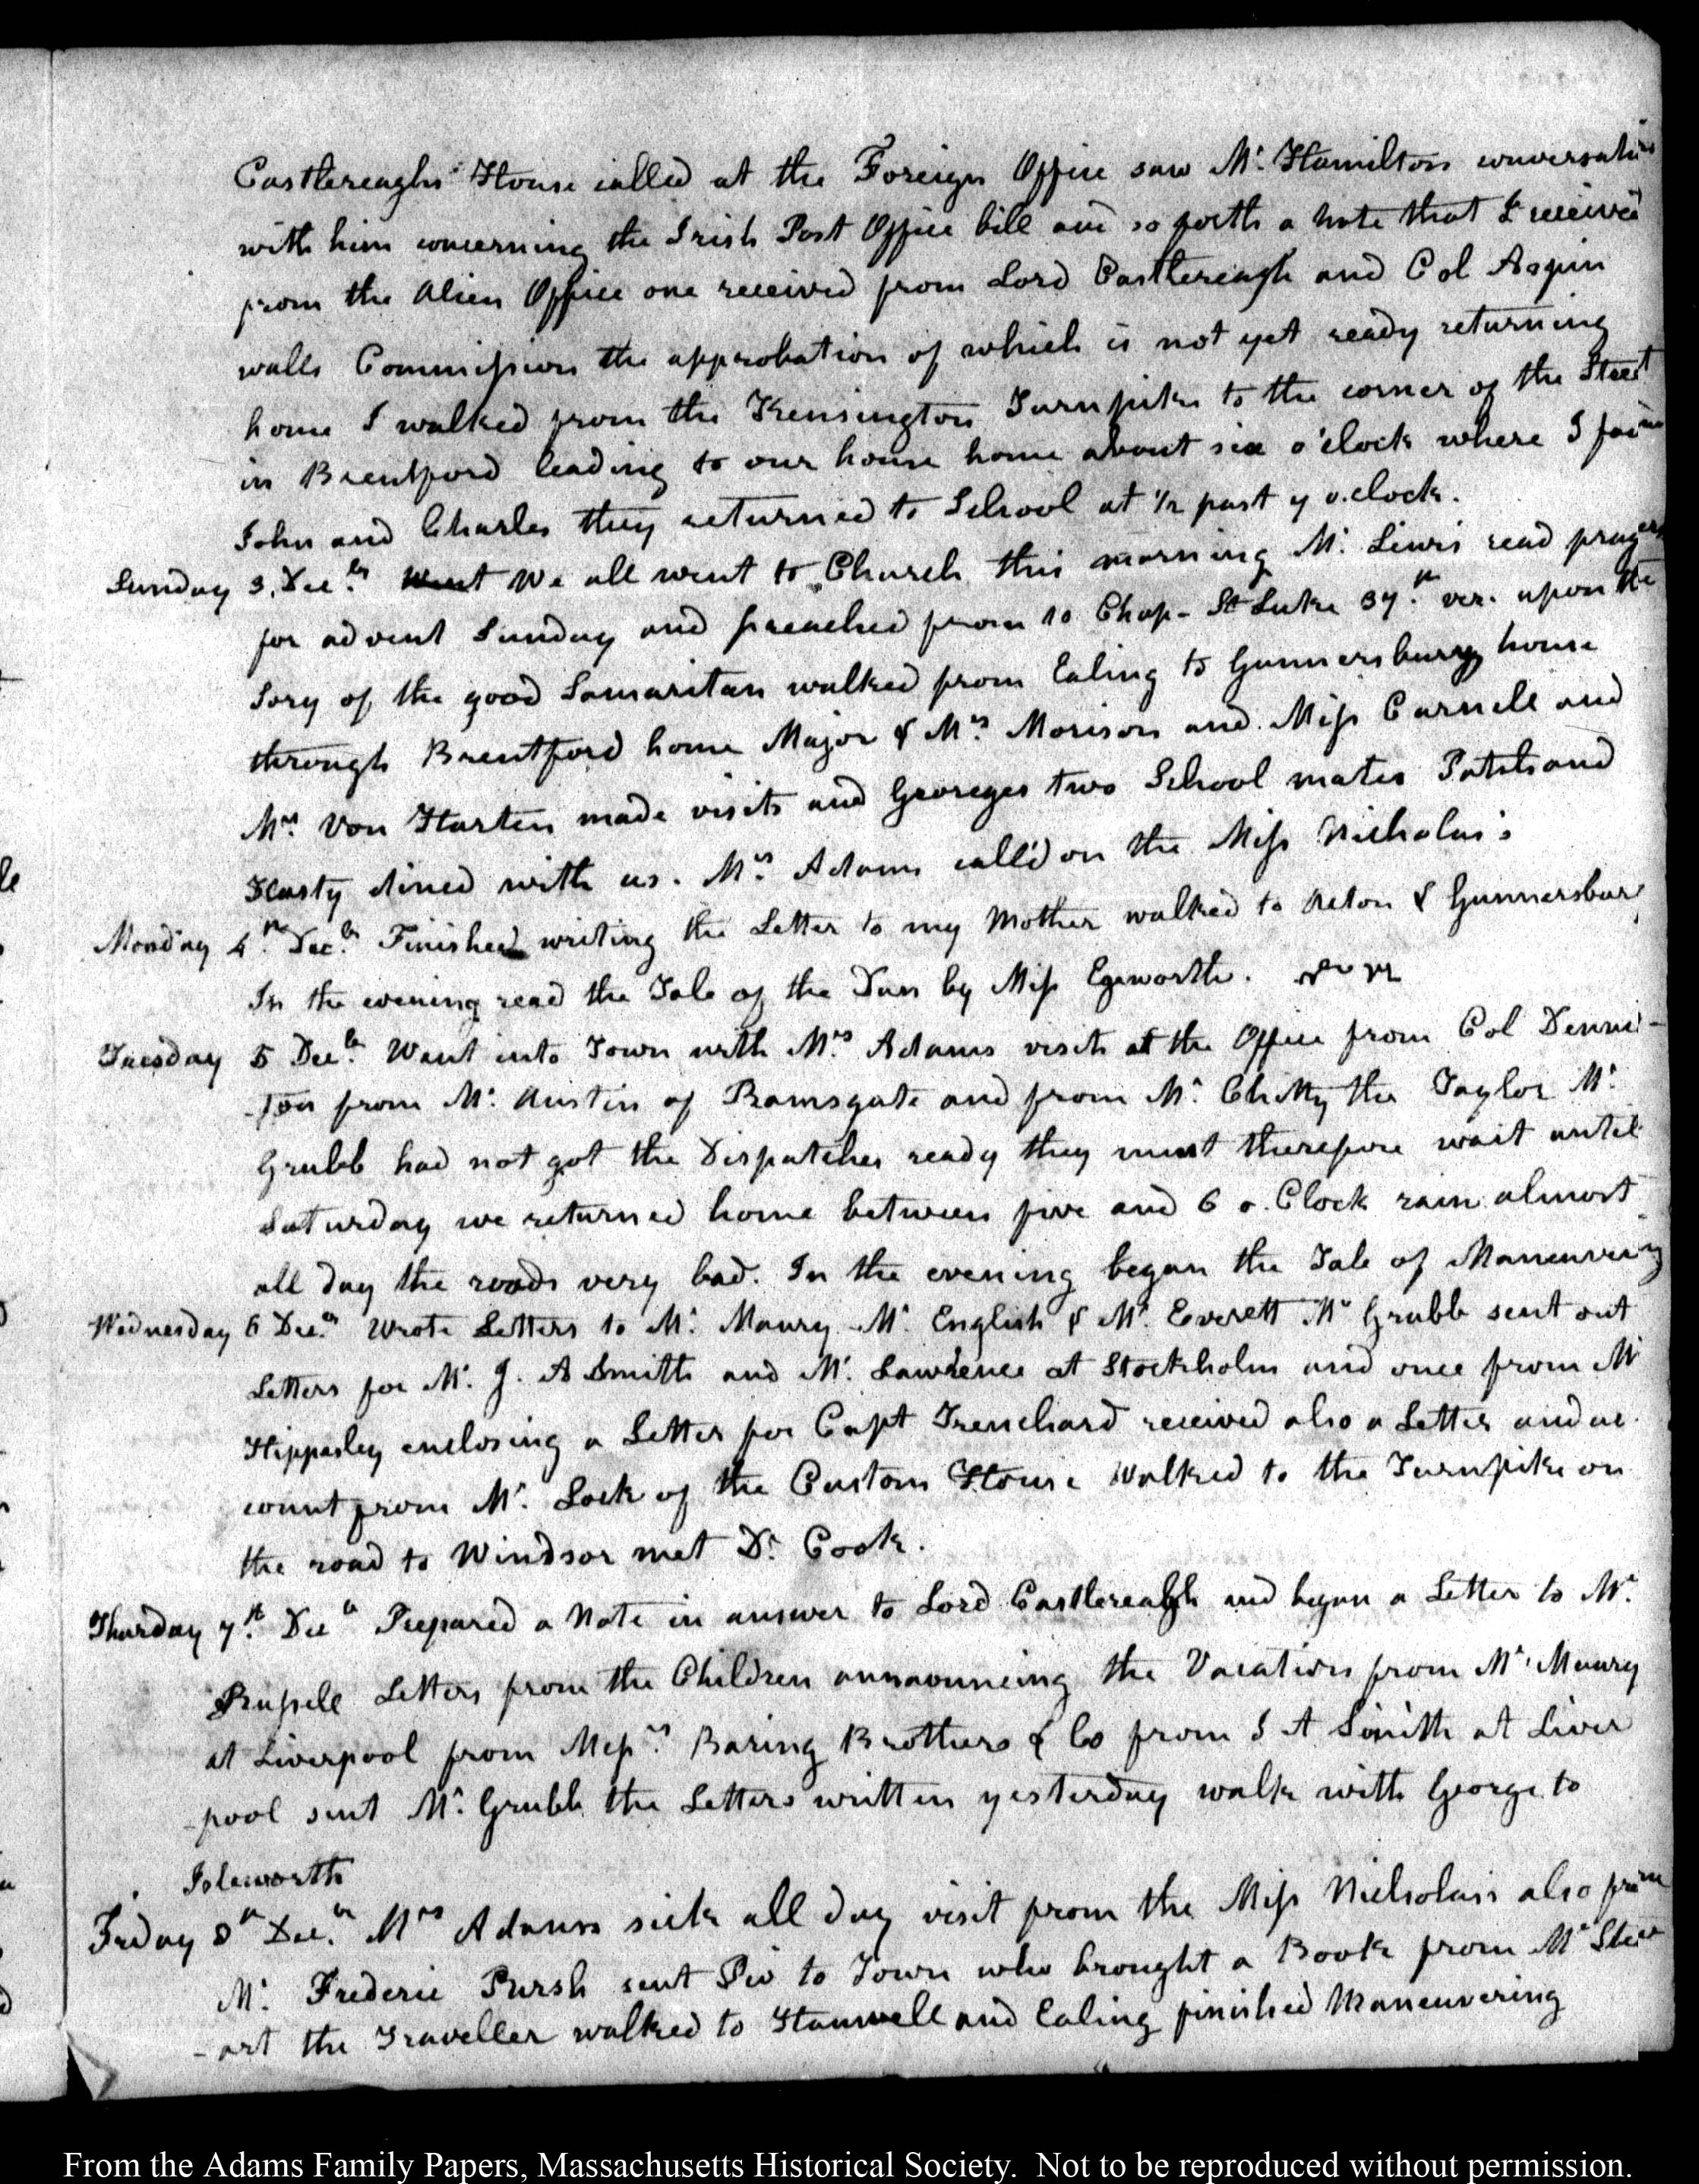 Castlereaghs House called at the Foreign Office saw Mr. Hamilton conversation
with him concerning the Irish Post Office bill and so forth a note that I received
from the Alien Office one received from Lord Castlereagh and Col Aspin
walls Commission the approbation of which is not yet ready returning
home I walked from the Kensington Turnpike to the corner of the Street
in Brentford leading to our house home about six o'clock where I
John and Charles they returned to School at 1/2 past 7 o.clock.
Sunday 3. Decbr. Went We all went to Church this morning Mr. Lewis read prayers
for advent Sunday and preached from 10 Chap- St Luke 37.th ver. upon the
Sory of the good Samaritan walked from Ealing to Gunnersburry house
through Brentford home Major & Mrs. Morison and Miss Carnell and
Mrs. Von Harten made visits and Georeges two School mates and
dined with us. Mrs. Adams call'd on the Miss Nicholas's
Monday 4.th Decbr. Finished writing the Letter to my Mother walked to Acton & Gunnersbury
In the evening read the Tale of the Dun by Miss Egeworth.
Tuesday 5 Decbr. Want into Town with Mrs. Adams visits at the Office from Col Denni-
-son from Mr. Austin of Ramsgate and from Mr. Chitty the Taylor Mr.
Grubb had not got the Dispatches ready they must therefore wait until
Saturday we returned home between five and 6 o. Clock rain almost
all day the roads very bad. In the evening began the Tale of Maneuvering
Wednesday 6 Decbr. Wrote Letters to Mr. Maury Mr. English & Mr. Everett Mr Grubb sent out
Letters for Mr. J. A Smith and Mr. Lawrence at Stockholm and once from Mr
Hippesley enclosing a Letter for Capt Trenchard received also a Letter and ac
count from Mr. Lock of the Custom House Walked to the Turnpike on
the road to Windsor met Dr. Cook.
Thurday 7.th Decbr Prepared a Note in answer to Lord Castlereabgh and began a Letter to Mr.
Russell Letters from the Children annaouncing the Vacation from Mr. Maury
at Liverpool from Messrs. Baring Brothers & Co from J A Smith at Liver
-pool sent Mr. Grubb the Letters written yesterday walk with George to
Isleworth
Friday 8th Decbr. Mrs Adams sick all day visit from the Miss Nicholass also from
Mr. Frederic Pursh sent Pio to Town who brought a Book from Mr Stew
-art the Traveller walked to Hanwell and Ealing finished Maneuvering
From the Adams Family Papers, Massachusetts Historical Society. Not to be reproduced without permission.